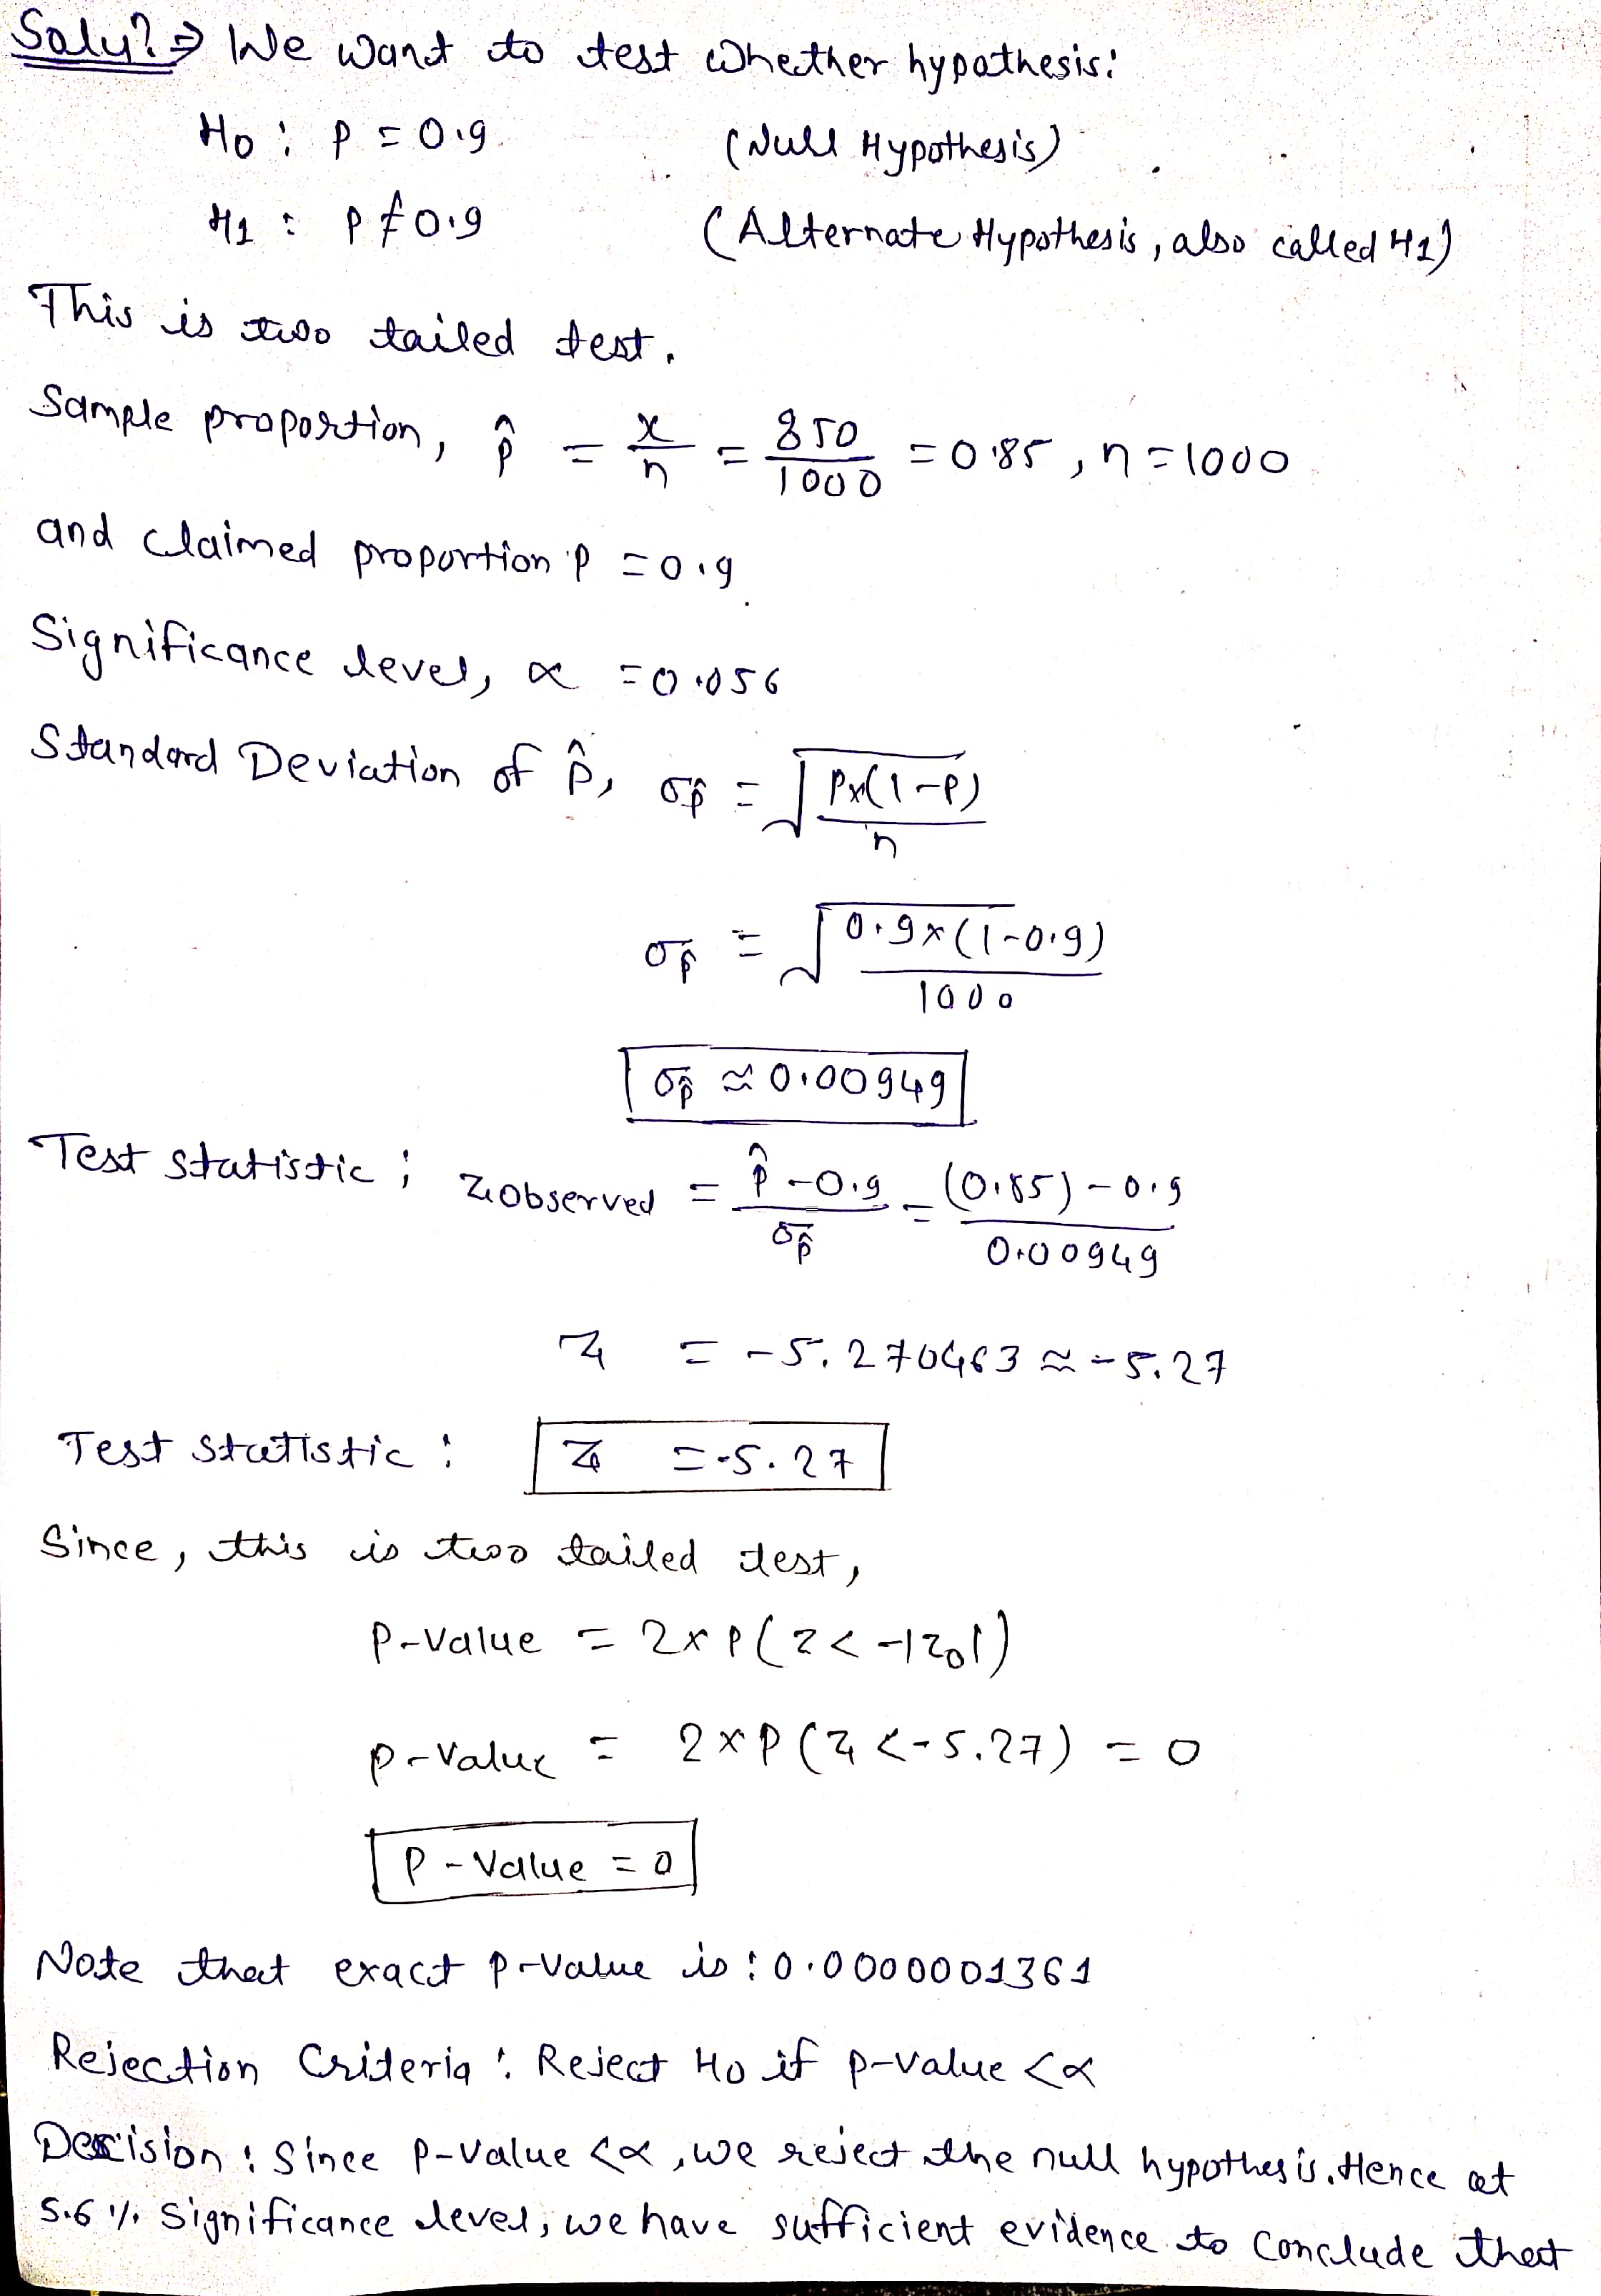 Solu? ⇒ We want to test whether hypothesis:
H0 : P = 0.9 (Null Hypothesis)
H1 : P ≠ 0.9 (Alternate Hypothesis, also called H1)
This is two tailed test.
Sample proportion, p̂ = x/n = 850/1000 = 0.85, n = 1000
and claimed proportion P = 0.9
Significance level, α = 0.056
Standard Deviation of p̂, σp̂ = √(P×(1-P)/n)
σp̂ = √(0.9×(1-0.9)/1000)
σp̂ ≈ 0.00949
Test statistic ; Zobserved = (p̂ - 0.9)/σp̂ = ((0.85) - 0.9)/0.00949
Z = -5.270463 ≈ -5.27
Test statistic : Z0 = -5.27
Since, this is two tailed test,
P-value = 2×P(Z < -|Z0|)
p-value = 2×P(Z < -5.27) = 0
P-Value = 0
Note that exact p-value is : 0.0000001361
Rejection Criteria : Reject H0 if p-value < α
Decision : Since P-value < α, we reject the null hypothesis. Hence at
5.6 % Significance level, we have sufficient evidence to conclude that